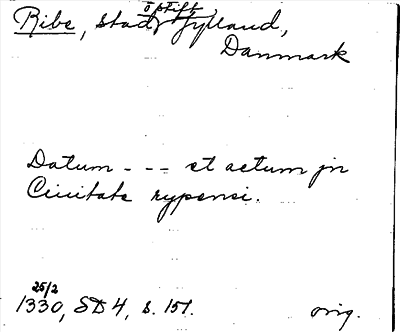 Ribe, stad o stift, Jylland,
Danmark
Datum - - - et actum jn
Ciuitate rypensi.
25/2
1330, SD 4, s. 151.
orig.